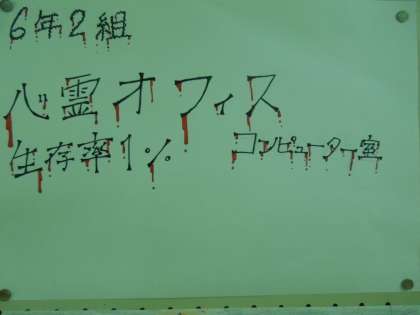 6年2組
心霊オフィス
生存率1% コンピューター室